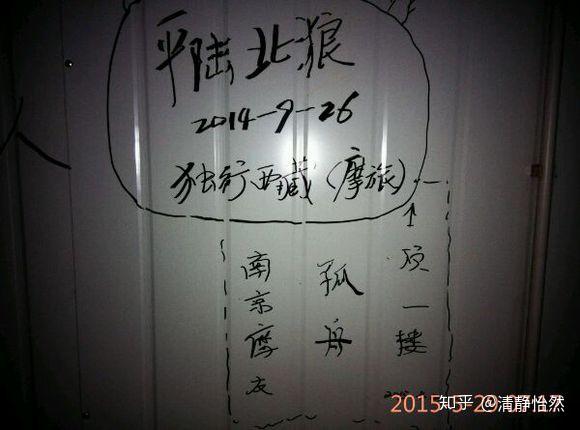 平陆北狼
2014-9-26
独行西藏(摩旅)
人
南京摩友
孤舟
↑顶一楼
2015-5-29
知乎 @清静怡然